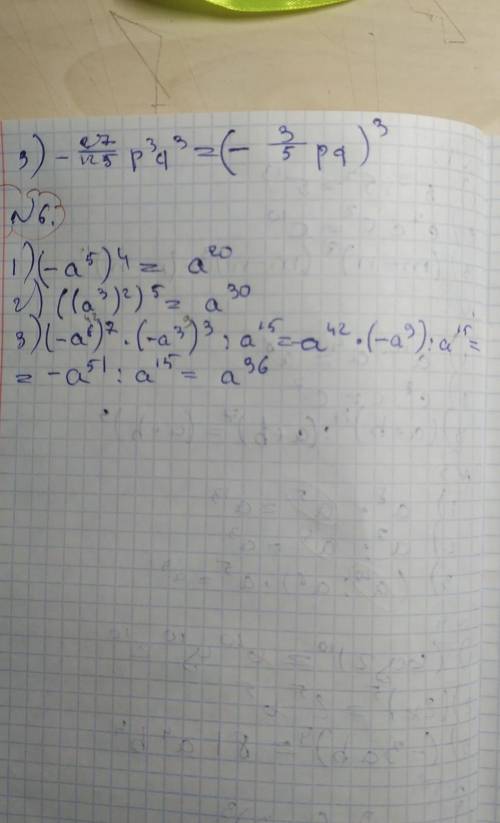 3) - 27/125 p³q³ = (- 3/5 pq)³
№6.
1) (-a⁵)⁴ = a²⁰
2) ((a³)²)⁵ = a³⁰
3) (-a⁶)⁷ · (-a³)³ : a¹⁵ = -a⁴² · (-a⁹) : a¹⁵ =
= -a⁵¹ : a¹⁵ = a³⁶